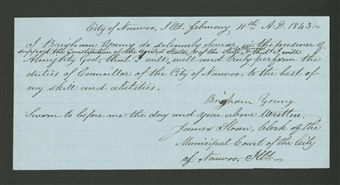 City of Nauvoo, Ills. February 11th A.D. 1843.
I Brigham Young do solemnly swear in the presence of
support the constitution of the United States & of the State that I will
Almighty God, that I will, well and truly perform the
duties of Councillor of the City of Nauvoo, to the best of
my skill and abilities.
Brigham Young
Sworn to before me the day and year above written.
James Sloan, Clerk of the
Municipal Court of the City
of Nauvoo, Ills.